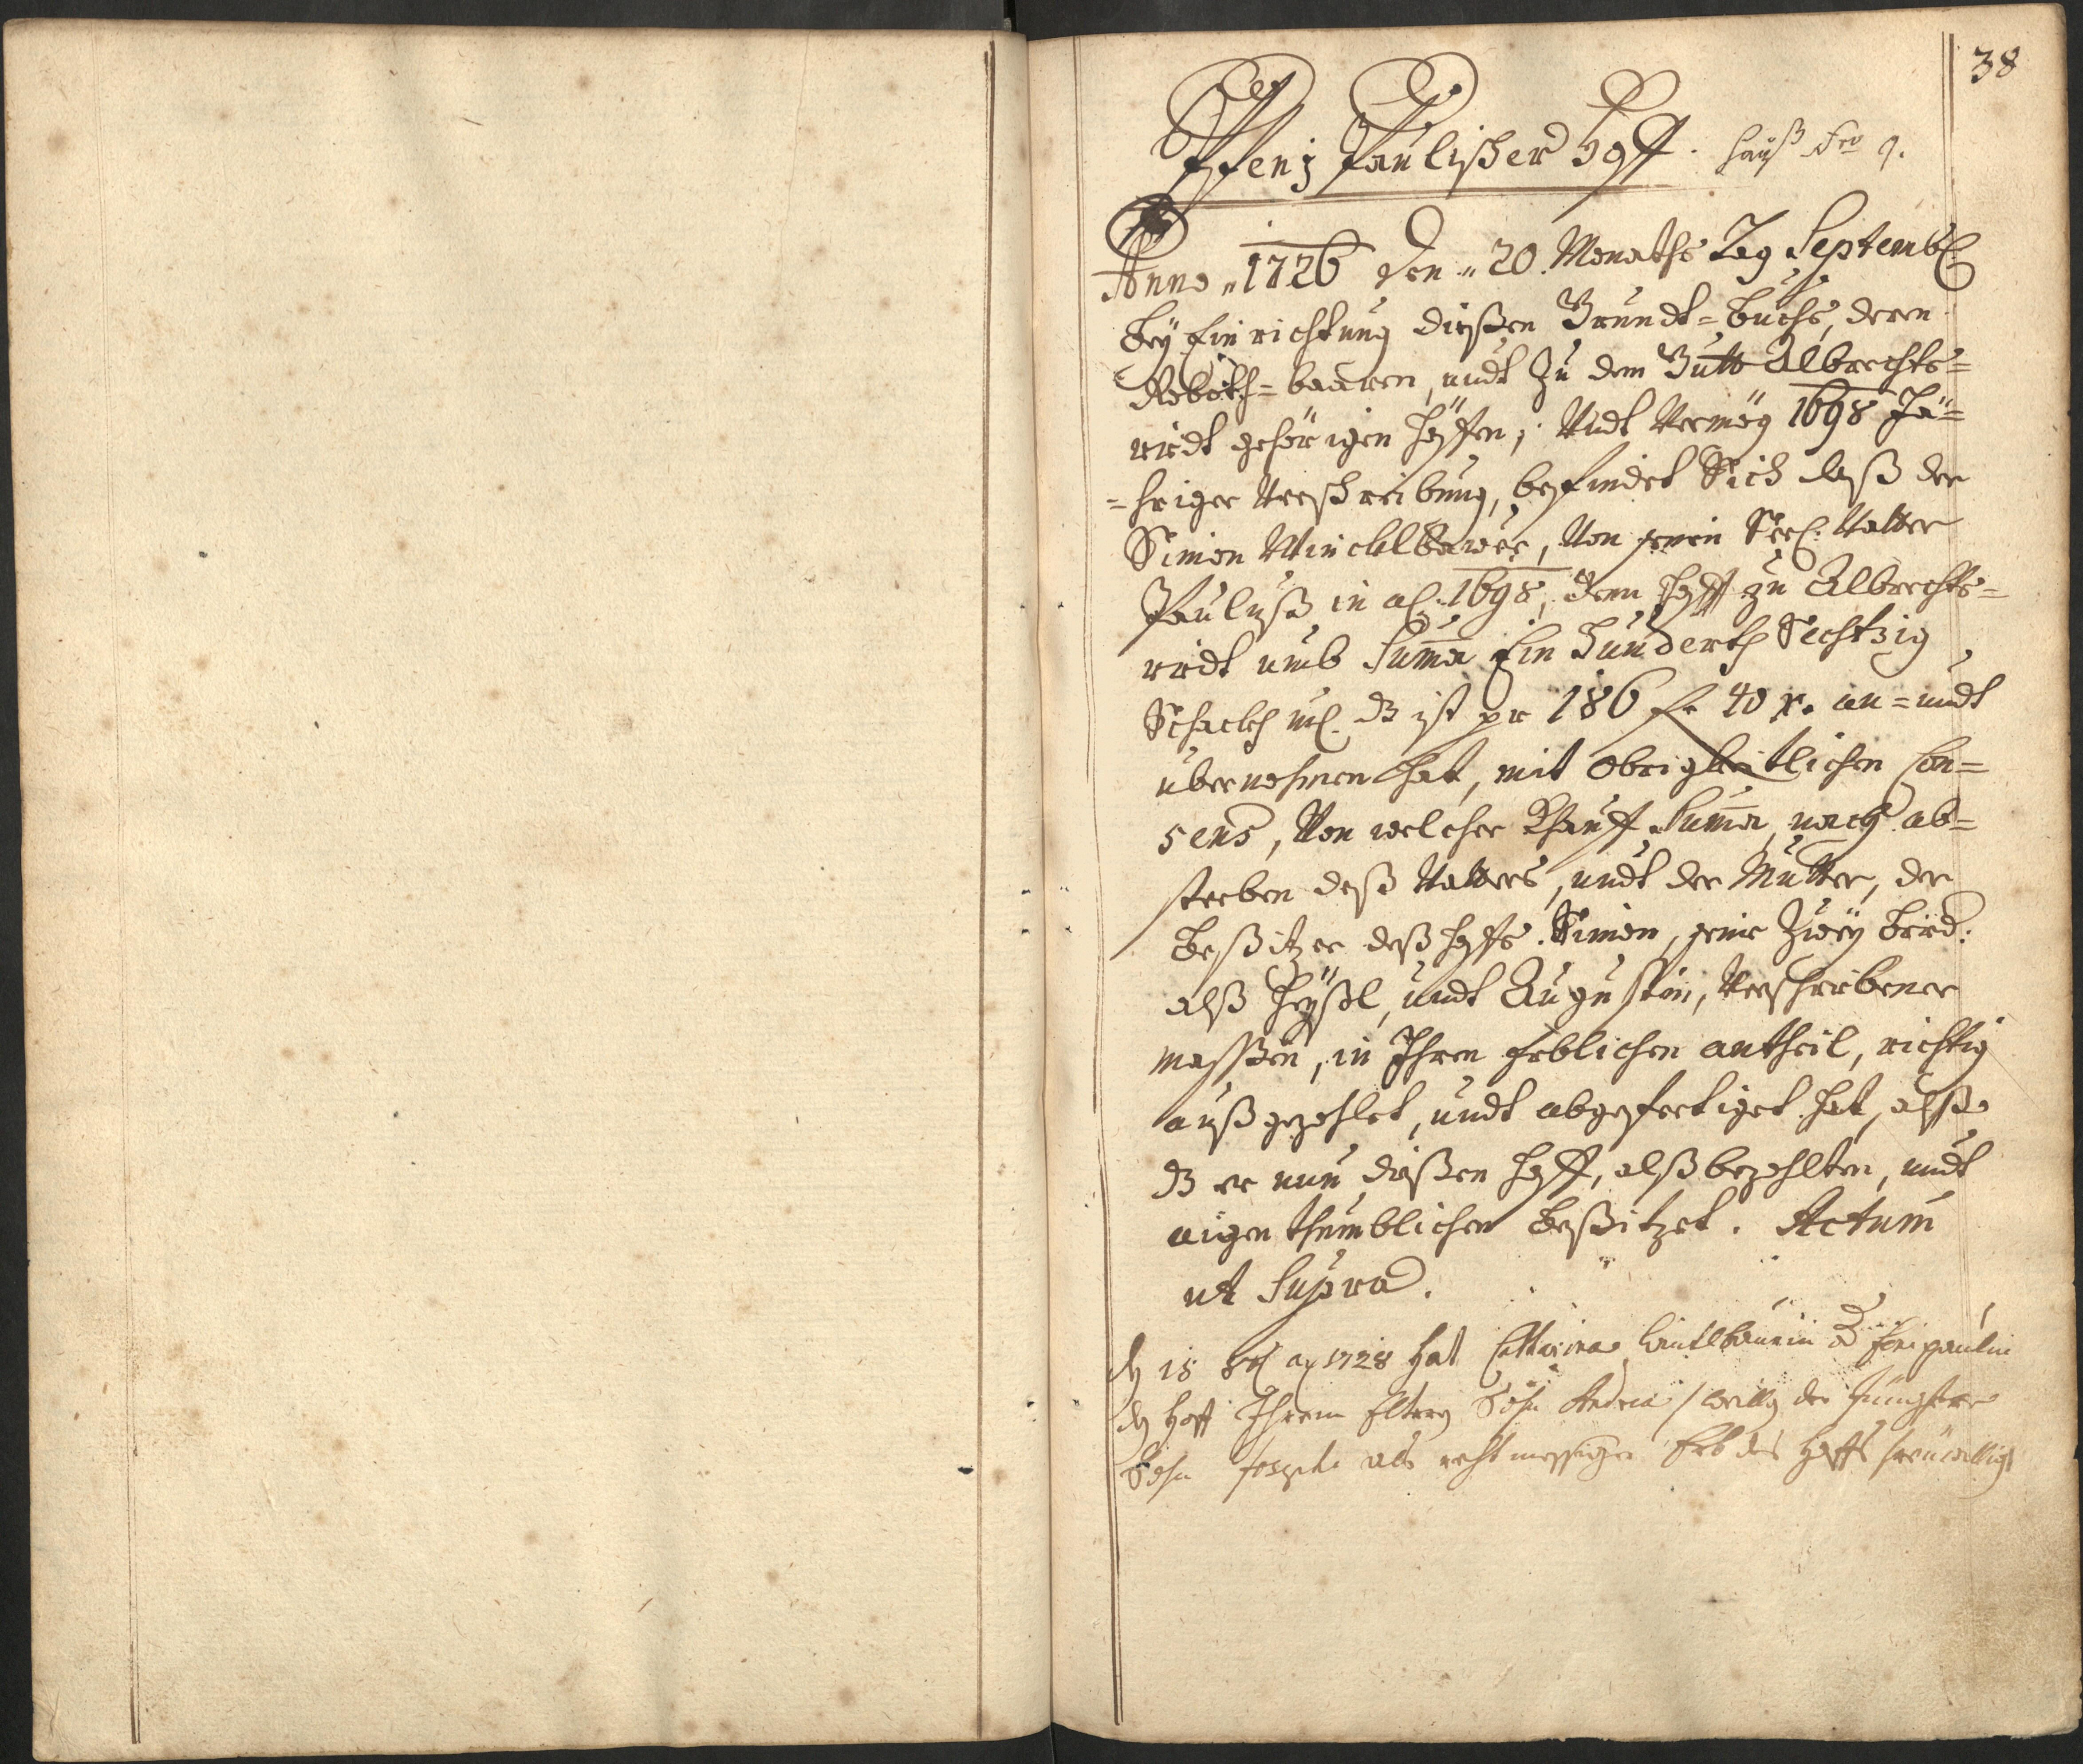 38
Paulischer Hoff. Hauß Nro 9.
Anno 1726 den 20. Monaths Tag Septemb:
beÿ Einrichtung dießen Grundt=Buchs, deren
Roboth=baaren, undt zu dem Gutt Albrechts=
riedt gehörigen Höffen, Undt Vermög 1698 Jä=
=hriger Verschreibung, befindet Sich daß der
Simon Winckelbawer, Von sein Seel: Vatter
Pauluß in ao: 1698, den Hoff zu Albrechts=
riedt umb Suma Ein Hunderth Sechtzig
Schockh m: dz ist pr 186 fr 40 x. an=undt
übernohmen hat, mit Obrigkeitlichen Con=
sens, Von welcher Khauff Suma, nach ab=
sterben deß Vatters, undt der Mutter, der
Beßitzer deß Hoffs. Simon, seine Zweÿ Brüd:
alß Heÿßl, undt Augustin, Verschriebener
massßen, in Ihren Erblichen antheil, richtig
außgezehlet, undt abgefertiget hat, alßo
dz er nun dießen Hoff, alß bezahlten, undt
aigenthumblichen beßitzet. Actum
ut Supra.
15 ao 1728 hat Catharina
Hoff Ihrem Eltern Sohn Andrea / weillen der Jüngstere
Sohn Joseph als rechtmessiger Erb des Hoffs freuwilligst